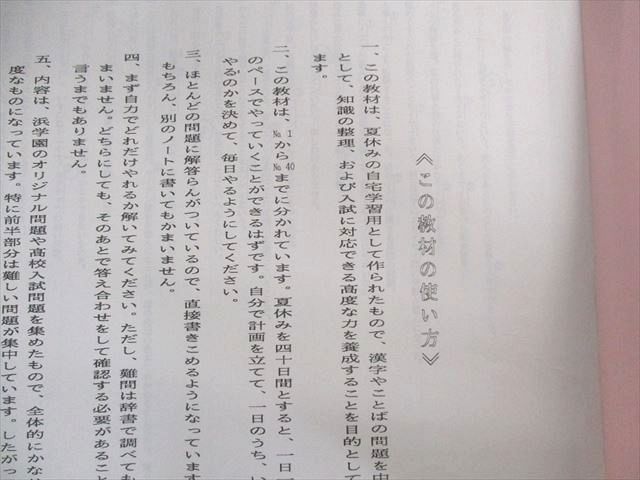 《この教材の使い方》
一、この教材は、夏休みの自宅学習用として作られたもので、漢字やことばの問題を中
として、知識の整理、および入試に対応できる高度な力を養成することを目的として
ます。
二、この教材は、№1から№40までに分かれています。夏休みを四十日間とすると、一日一
のペースでやっていくことができるはずです。自分で計画を立てて、一日のうち、い
やるのかを決めて、毎日やるようにしてください。
三、ほとんどの問題に解答らんがついているので、直接書きこめるようになっています
もちろん、別のノートに書いてもかまいません。
四、まず自力でどれだけやれるか解いてみてください。ただし、難問は辞書で調べても
まいません。どちらにしても、そのあとで答え合わせをして確認する必要があること
言うまでもありません。
五、内容は、浜学園のオリジナル問題や高校入試問題を集めたもので、全体的にかな
度なものになっています。特に前半部分は難しい問題が集中しています。したがっ